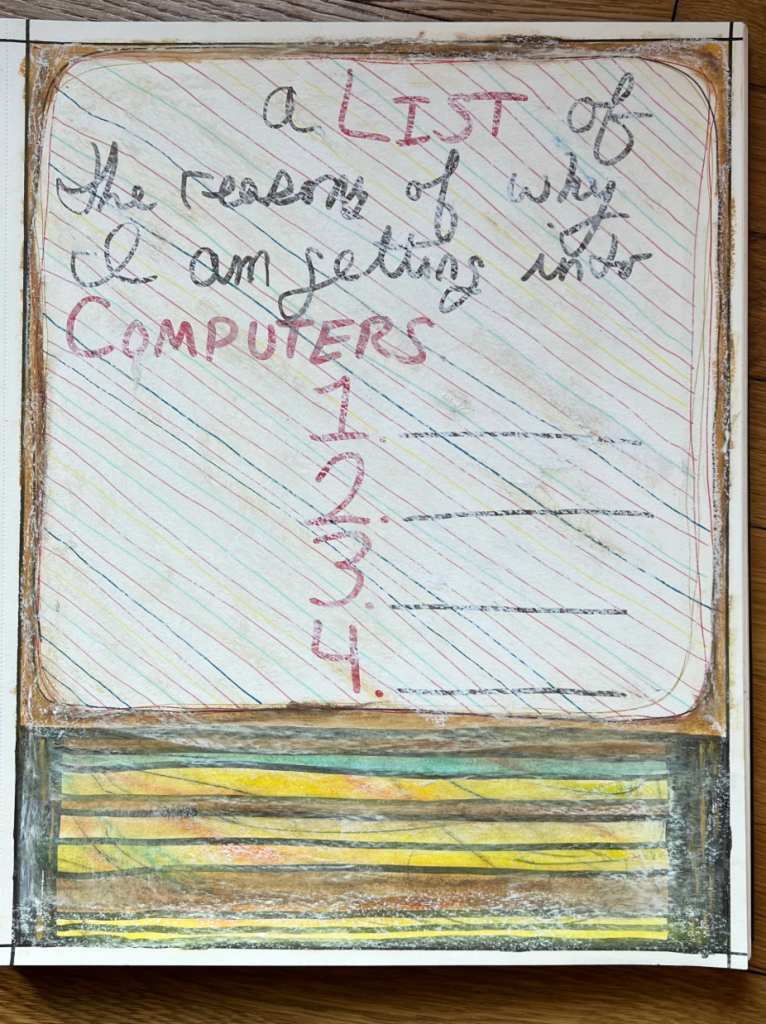 a LIST of
the reasons of why
I am getting into
COMPUTERS
1.
2.
3.
4.